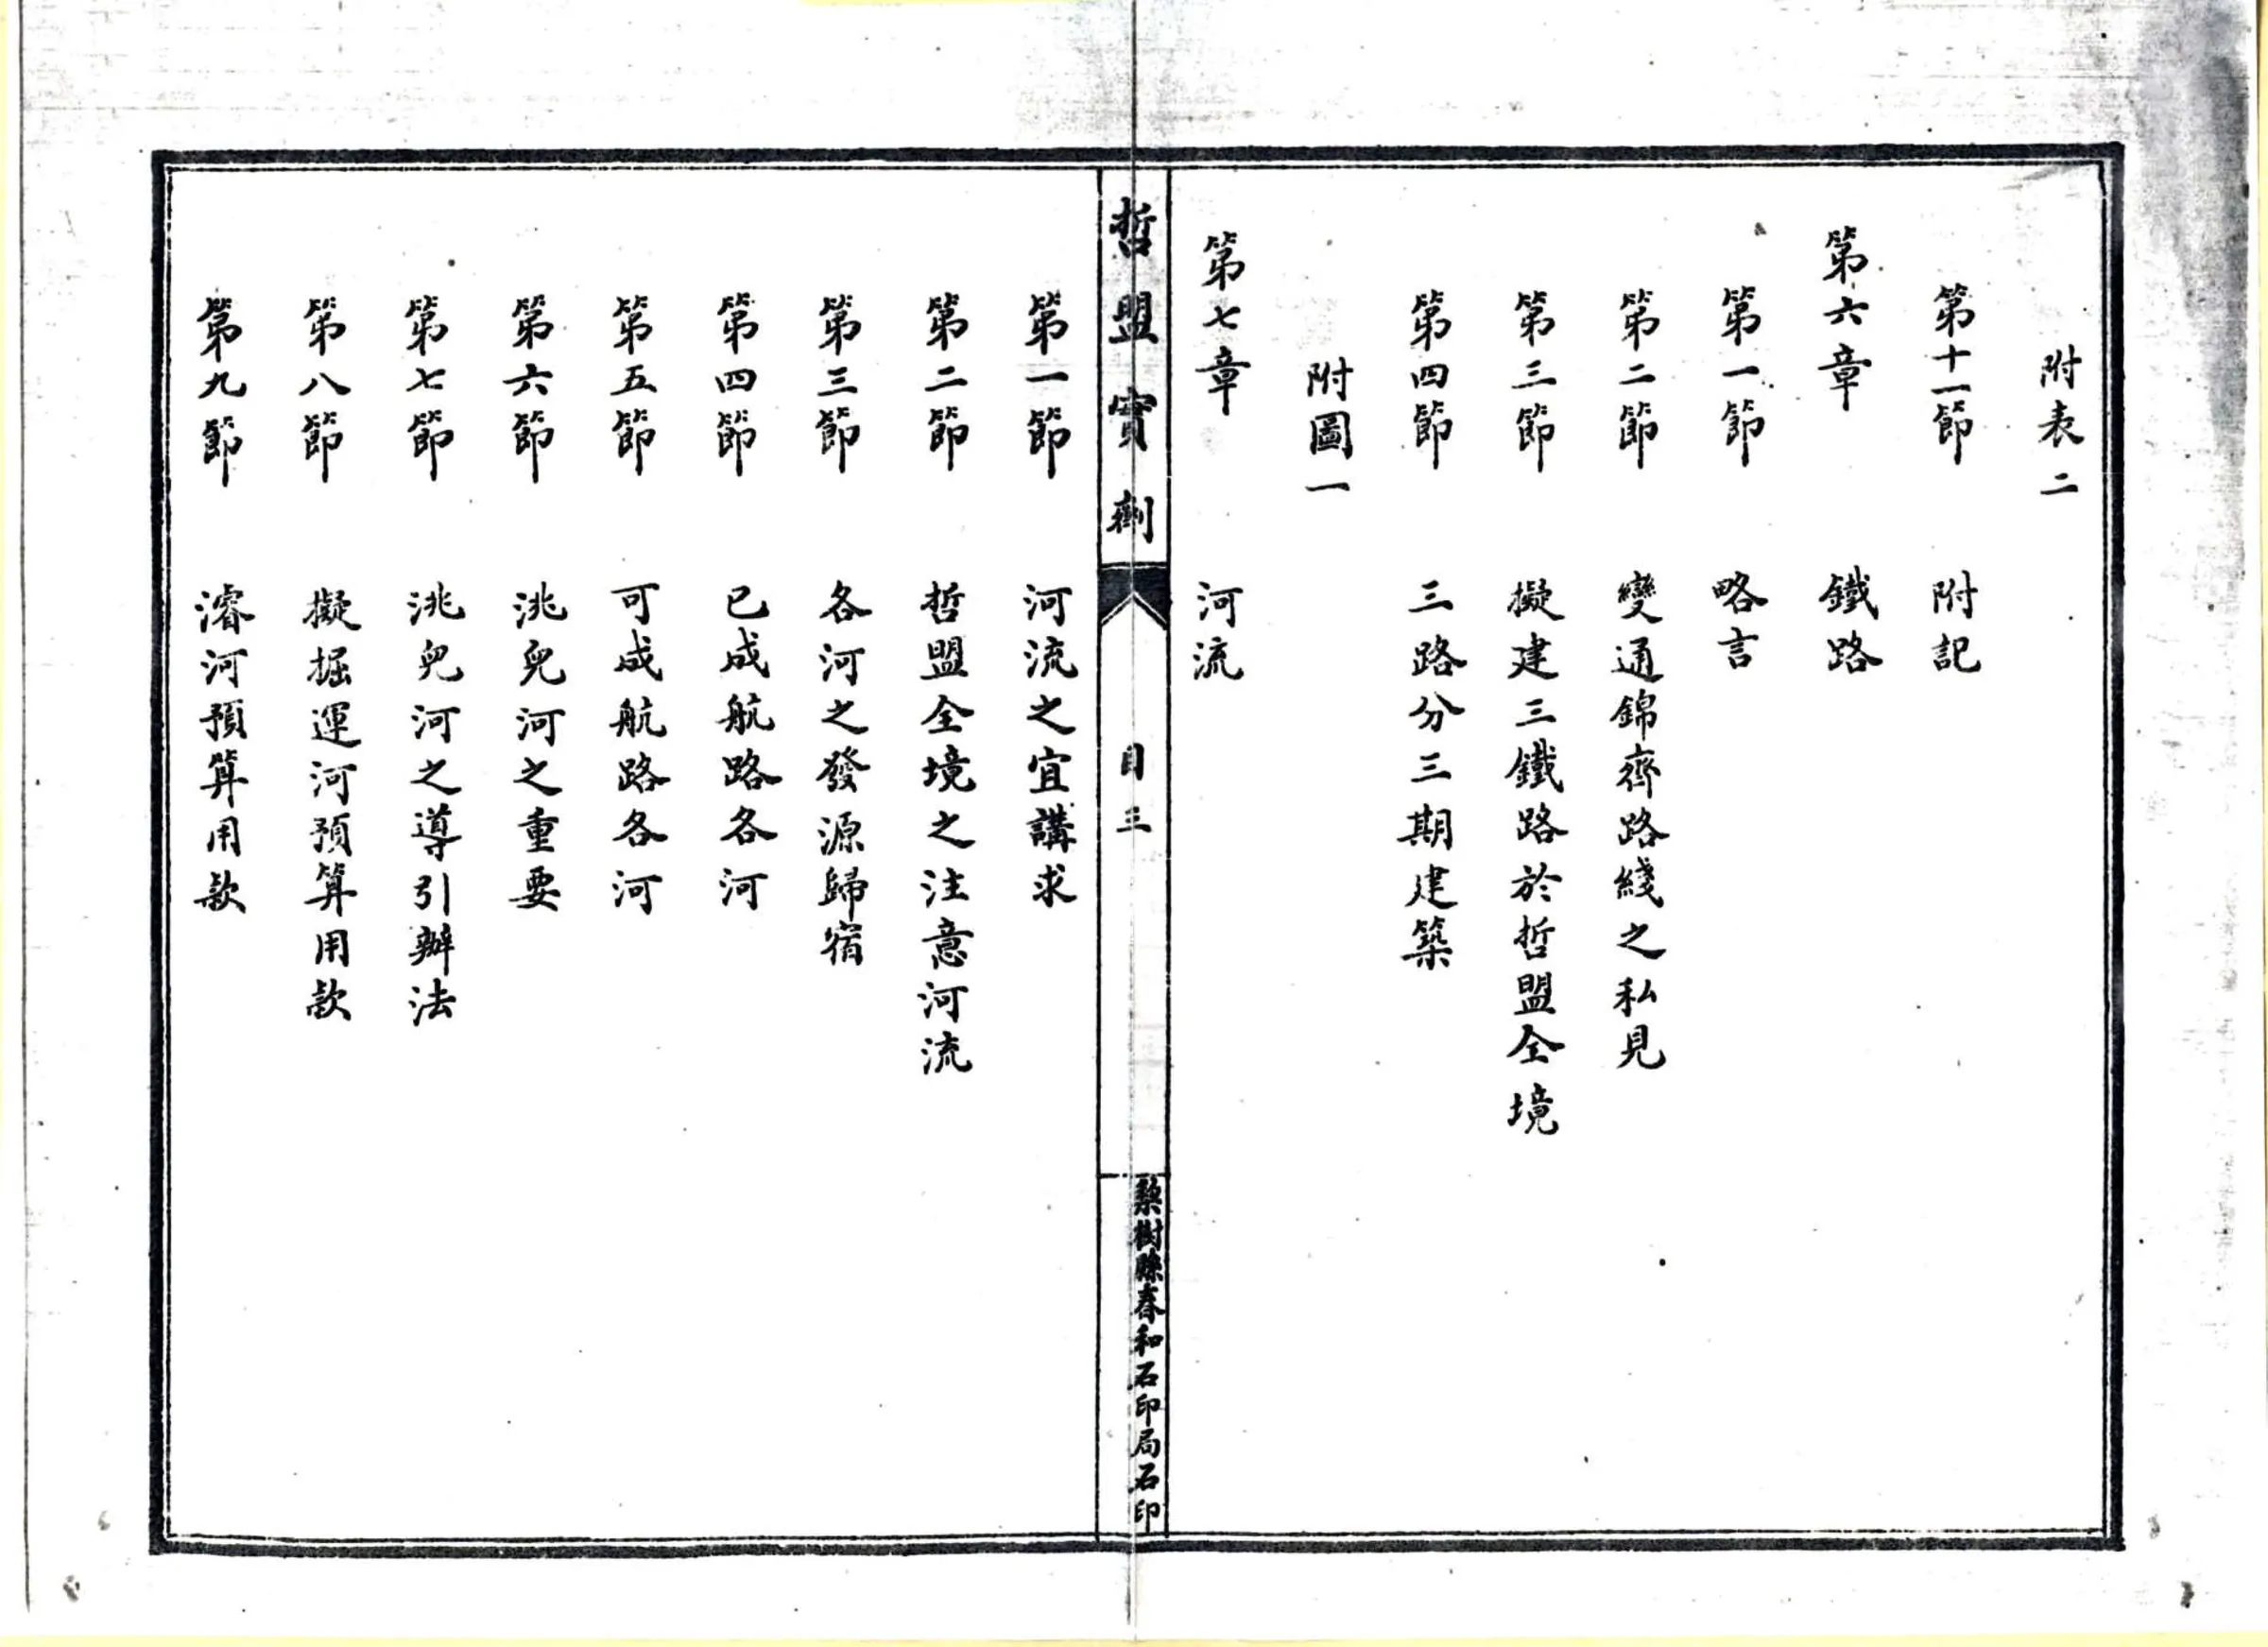 附表二
第十一節 附記
第六章 鐵路
第一節 略言
第二節 變通錦齊路綫之私見
第三節 擬建三鐵路於哲盟全境
第四節 三路分三期建築
附圖一
第七章 河流
哲盟實劑 目三 梨樹縣春和石印局石印
第一節 河流之宜講求
第二節 哲盟全境之注意河流
第三節 各河之發源歸宿
第四節 已成航路各河
第五節 可成航路各河
第六節 洮兒河之重要
第七節 洮兒河之導引辦法
第八節 擬掘運河預算用款
第九節 濬河預算用款